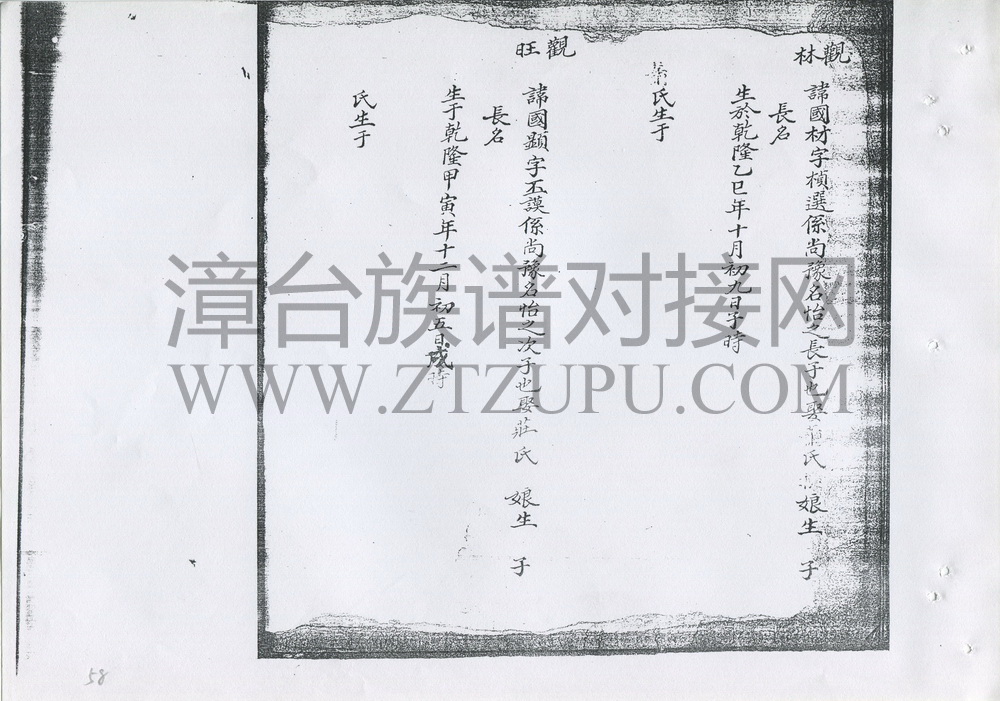 觀林
諱國材字楨選係尚豫名怡之長子也娶葉氏 娘生 子
長名
生於乾隆乙巳年十月初九日子時
葉氏生于
觀旺
諱國顯字丕謨係尚豫名怡之次子也娶莊氏 娘生 子
長名
生于乾隆甲寅年十二月初五日戌時
氏生于
漳台族谱对接网
WWW.ZTZUPU.COM
58